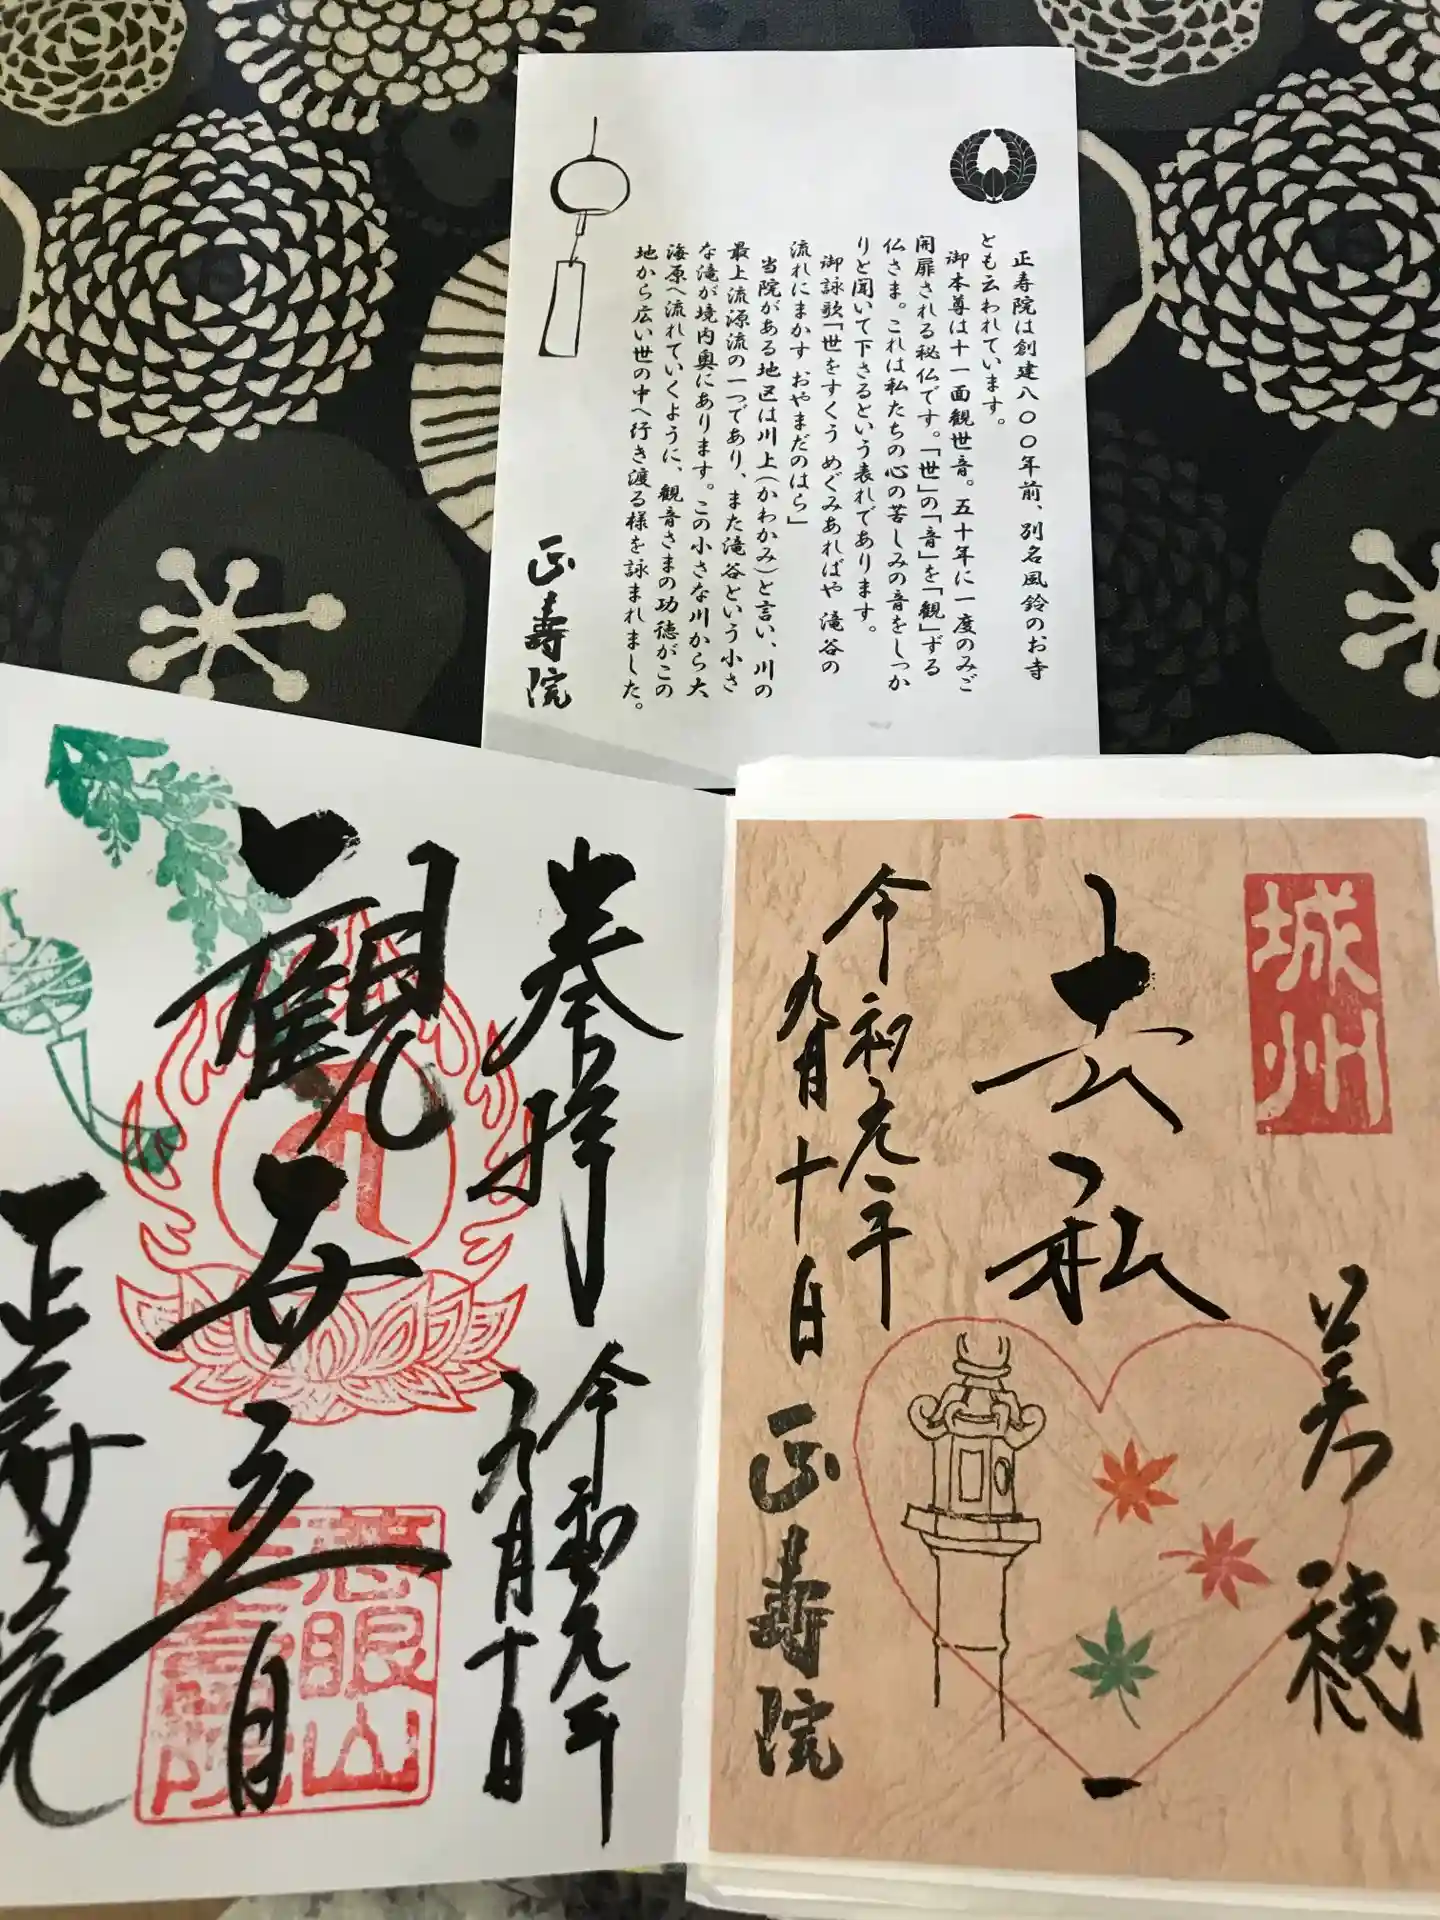 正寿院は創建八〇〇年前、別名風鈴のお寺
とも云われています。
御本尊は十一面観世音。五十年に一度のみご
開扉される秘仏です。「世」の「音」を「観」ずる
仏さま。これは私たちの心の苦しみの音をしっか
りと聞いて下さるという表れであります。
御詠歌「世をすくう めぐみあればや 滝谷の
流れにまかす おやまだのはら」
当院がある地区は川上(かわかみ)と言い、川の
最上流源流の一つであり、また滝谷という小さ
な滝が境内奥にあります。この小さな川から大
海原へ流れていくように、観音さまの功徳がこの
地から広い世の中へ行き渡る様を詠まれました。
正壽院
奉拝
令和元年
九月十日
観世音
慈眼山
正壽院
正寿院
城州
美穂
去私
令和元年
九月十日
正壽院